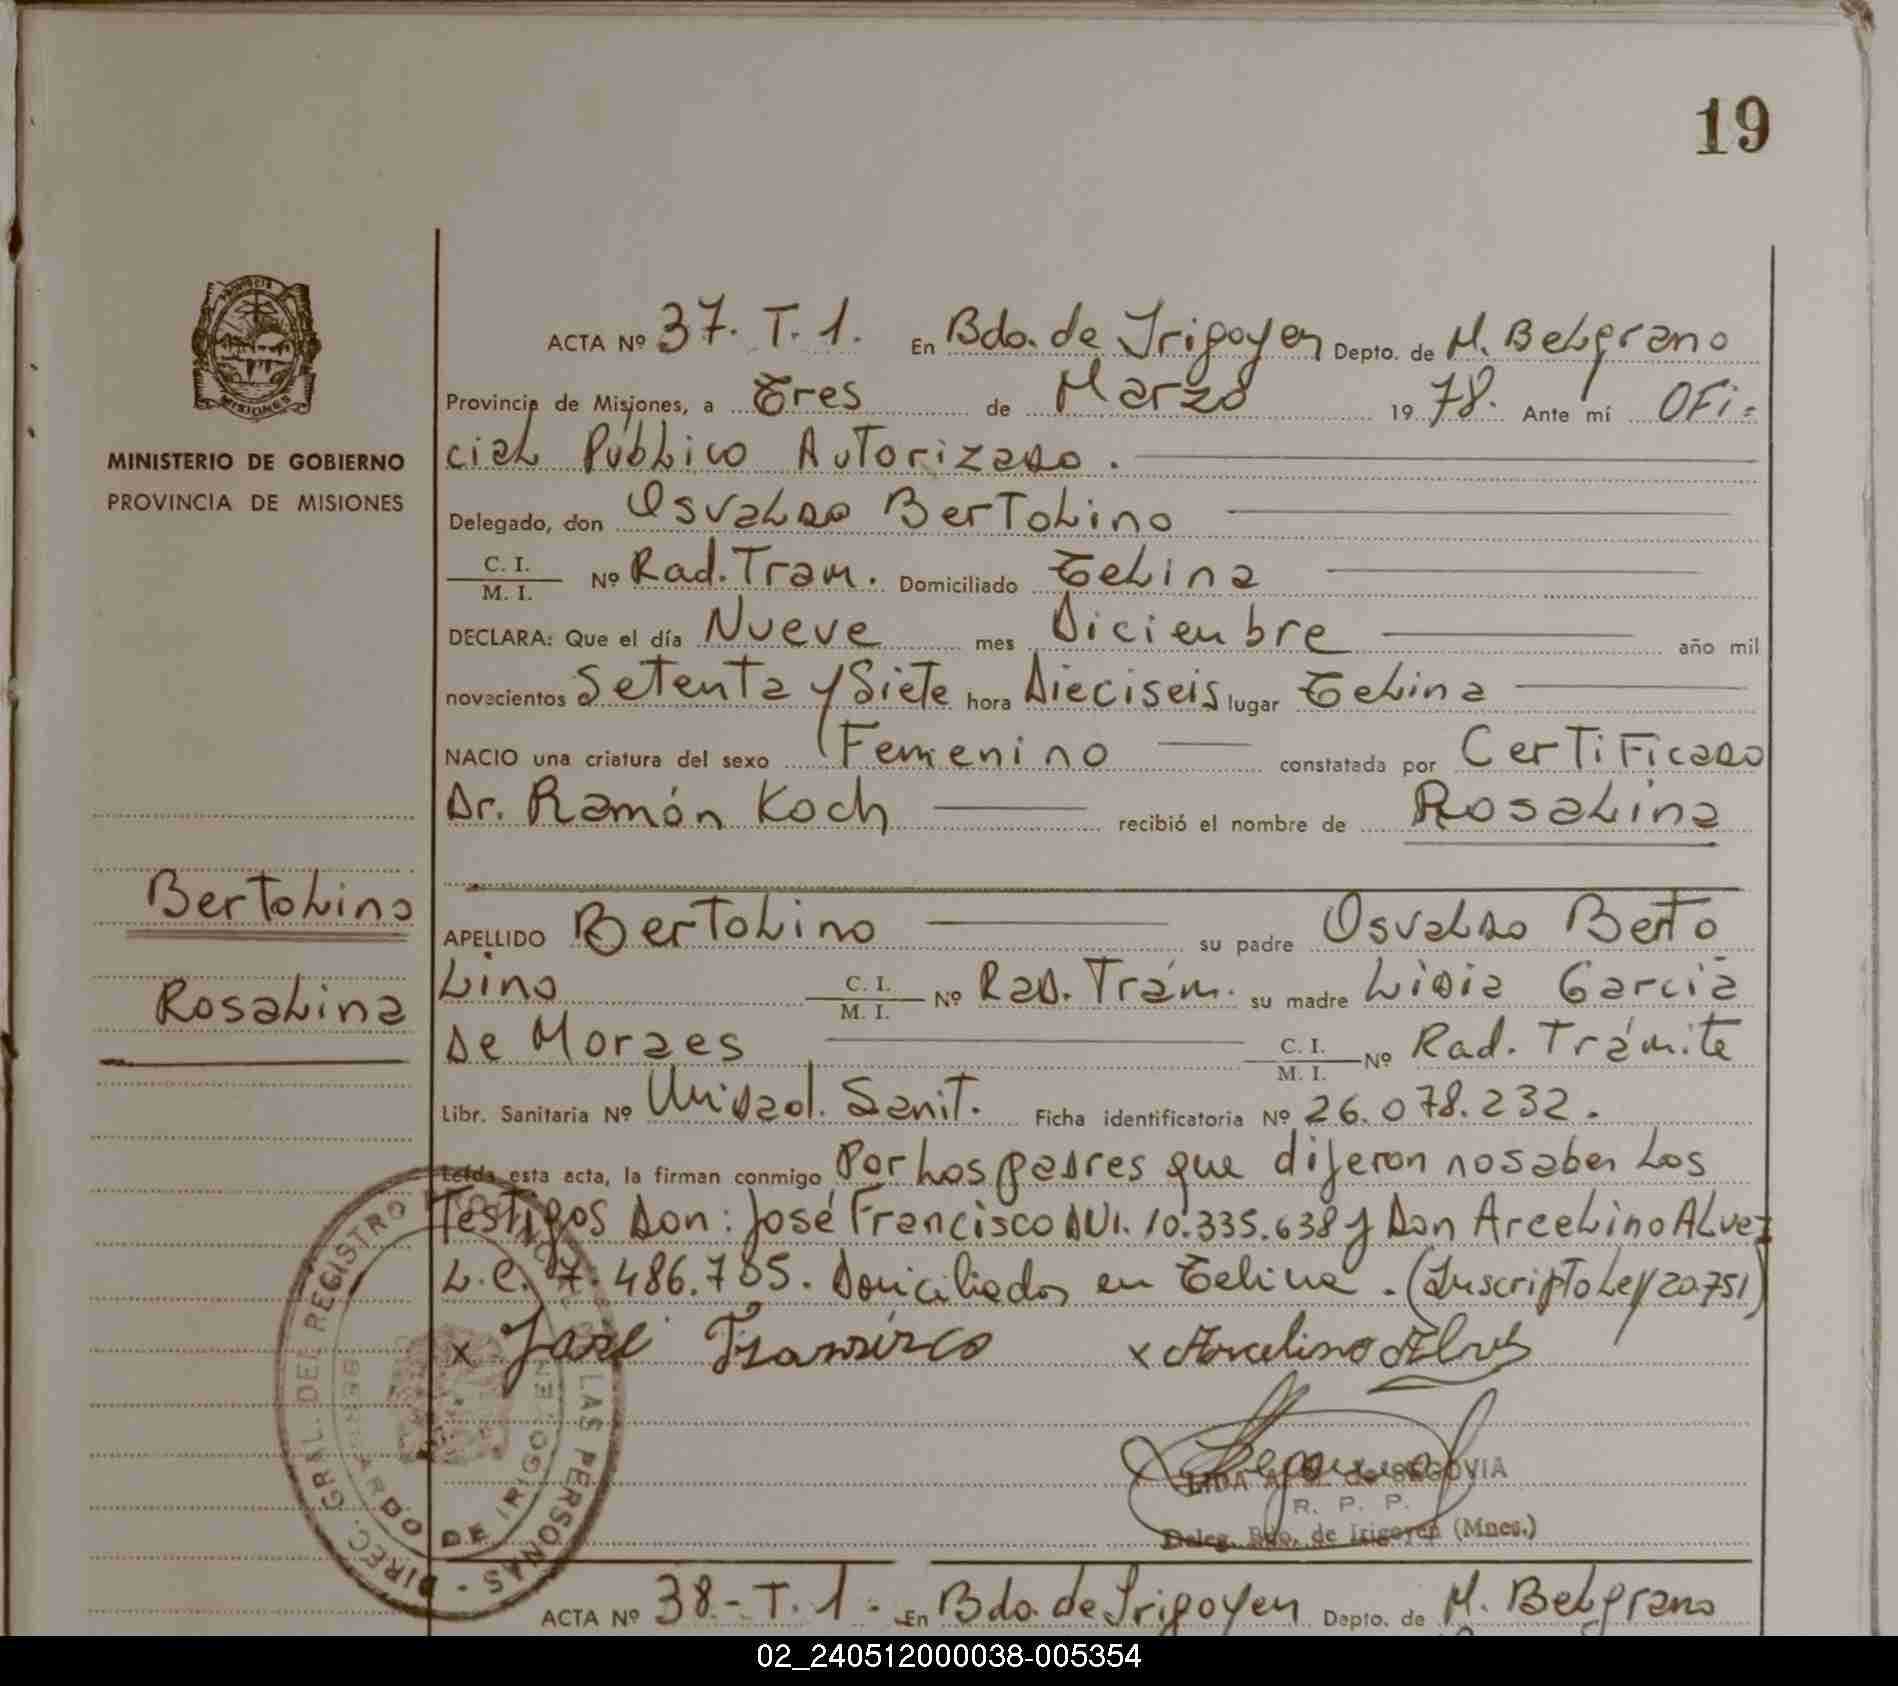 19
MISIONES
MINISTERIO DE GOBIERNO
PROVINCIA DE MISIONES
ACTA Nº 37. T. 1. En Bdo. de Irigoyen Depto. de M. Belgrano
Provincia de Misiones, a Tres de Marzo 1978. Ante mí OFi=
cial Público Autorizado.
Delegado, don Osvaldo Bertolino
C. I.
M. I. Nº Rad. Tram. Domiciliado Telina
DECLARA: Que el día Nueve mes Diciembre año mil
novecientos Setenta y Siete hora Dieciseis lugar Telina
NACIO una criatura del sexo Femenino constatada por Certificado
Dr. Ramón Koch recibió el nombre de Rosalina
Bertolino
Rosalina
APELLIDO Bertolino su padre Osvaldo Berto
lino C. I.
M. I. Nº Rad. Trám. su madre Lidia Garcia
De Moraes C. I.
M. I. Nº Rad. Trámite
Libr. Sanitaria Nº Unidad. Sanit. Ficha identificatoria Nº 26.078.232.
Leída esta acta, la firman conmigo Por los padres que dijeron no saber los
Testigos Don: José Francisco DNI. 10.335.638 y Don Arcelino Alvez
L.E. 7.486.785. Domiciliados en Telina. (Inscripto Ley 20.751)
x José Francisco x Arcelino Alves
DIREC. GRAL. DEL REGISTRO PROVINCIAL DE LAS PERSONAS -
BERNARDO DE IRIGOYEN
LIDA DE SEGOVIA
R. P. P.
Deleg. Bdo. de Irigoyen (Mnes.)
ACTA Nº 38 - T. 1 - En Bdo. de Irigoyen Depto. de M. Belgrano
02_240512000038-005354